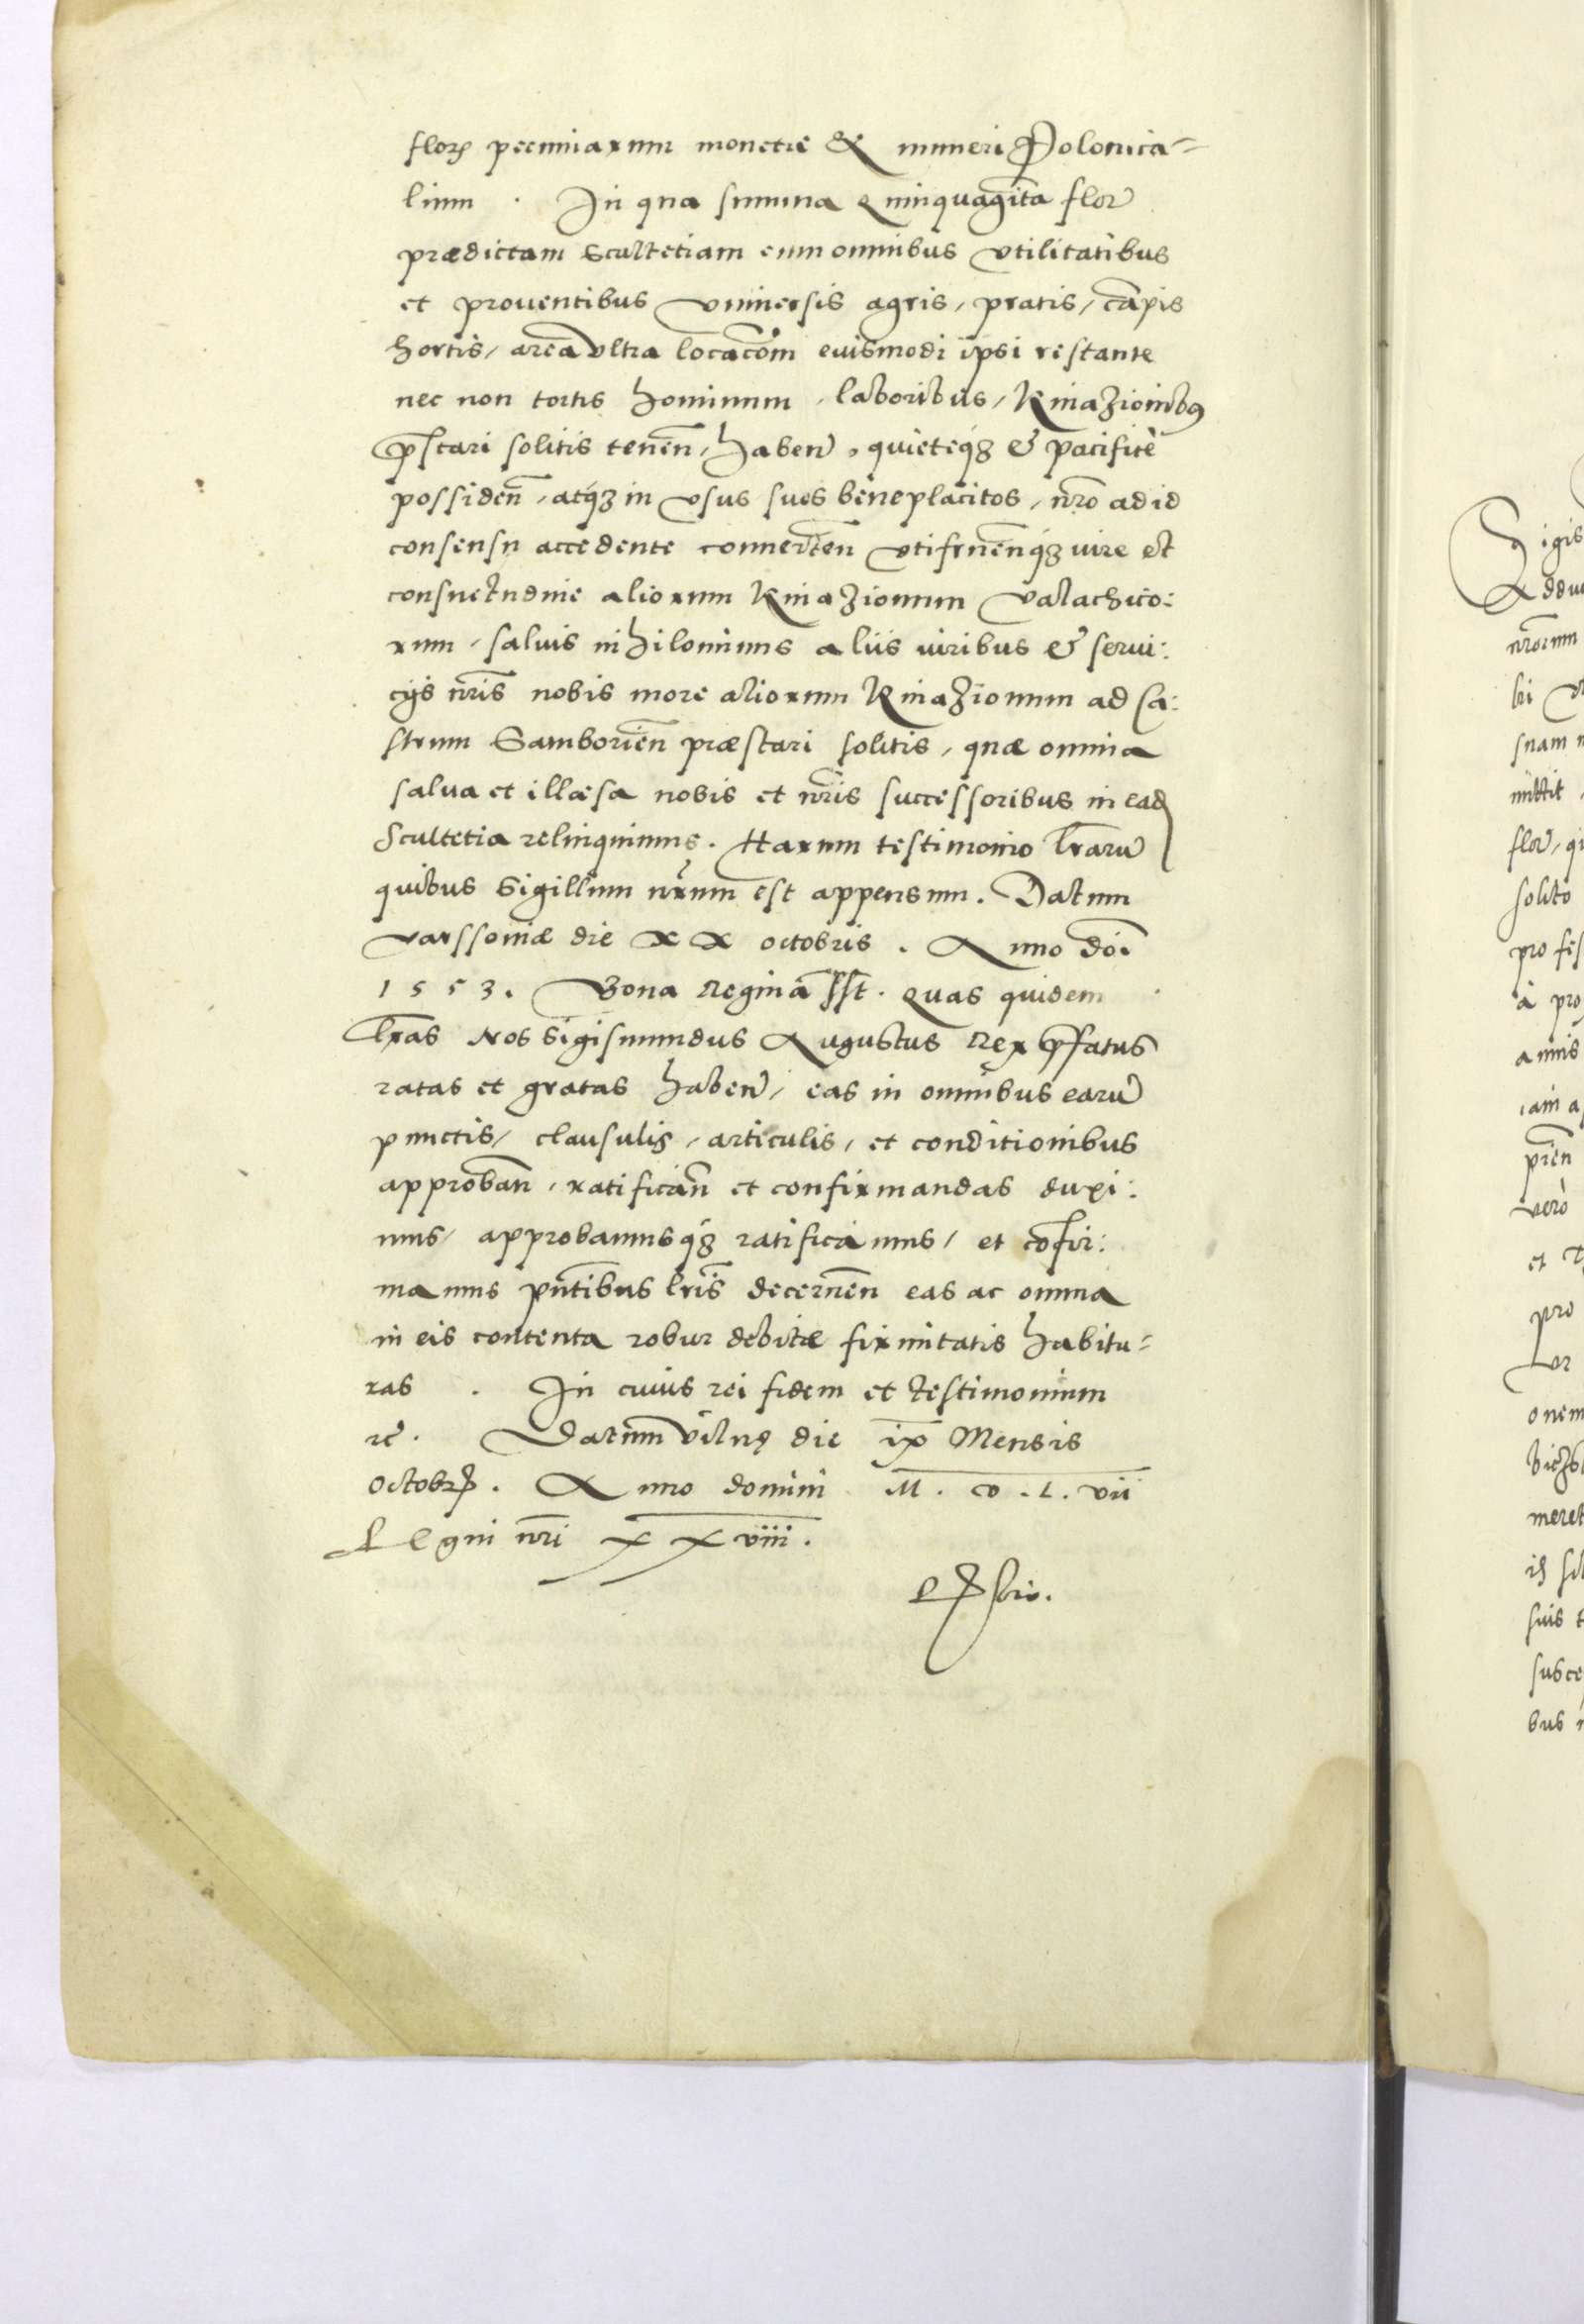 florę pecuniarum monetæ & numeri Polonica-
lium . In qua summa Quinquagīta flor̃
prædictam scultetiam cum omnibus vtilitatibus
et prouentibus vniuersis agris, pratis, cāpis
hortis, area vltra locacōm euismodi ipsi restante
nec non tortis hominum, laboribus, Kniazionibꝰ
p̄stari solitis tenen̄, haben̄, quieteqȝ & pacificè
possiden̄, atqȝ in vsus suos beneplacitos, nr̄o ad id
consensu accedente conuerten̄ vtifruen̄qȝ iure et
consuetudine aliorum Kniazionum Valachico:
rum, saluis nihilominus aliis iuribus & serui:
cijs nr̄is nobis more aliorum Kniazionum ad Ca:
strum Samborien̄ præstari solitis, quæ omnia
salua et illæsa nobis et nr̄is successoribus in ead
Scultetia relinquimus. Harum testimonio l̄rarū
quibus Sigillum nr̄um est appensum. Datum
varssouiæ die XX octobris. Anno dōi
1553. Bona Regina s̄s̄t. Quas quidem
l̄ras Nos Sigismundus Augustus Rex p̄fatus
ratas et gratas haben̄, eas in omnibus earū
punctis, clausulis, articulis, et conditionibus
approban̄, ratifican̄ et confirmandas duxi:
mus, approbamusqȝ ratificamus, et cōfir:
mamus pn̄tibus lr̄is decernen̄ eas ac omnia
in eis contenta robur debitæ firmitatis habitu-
ras . In cuius rei fidem et testimonium
rc̄. Datum vilnę die ix Mensis
octobrꝭ. Anno domini M. D. L. vii
Regni nr̄i XXviii.